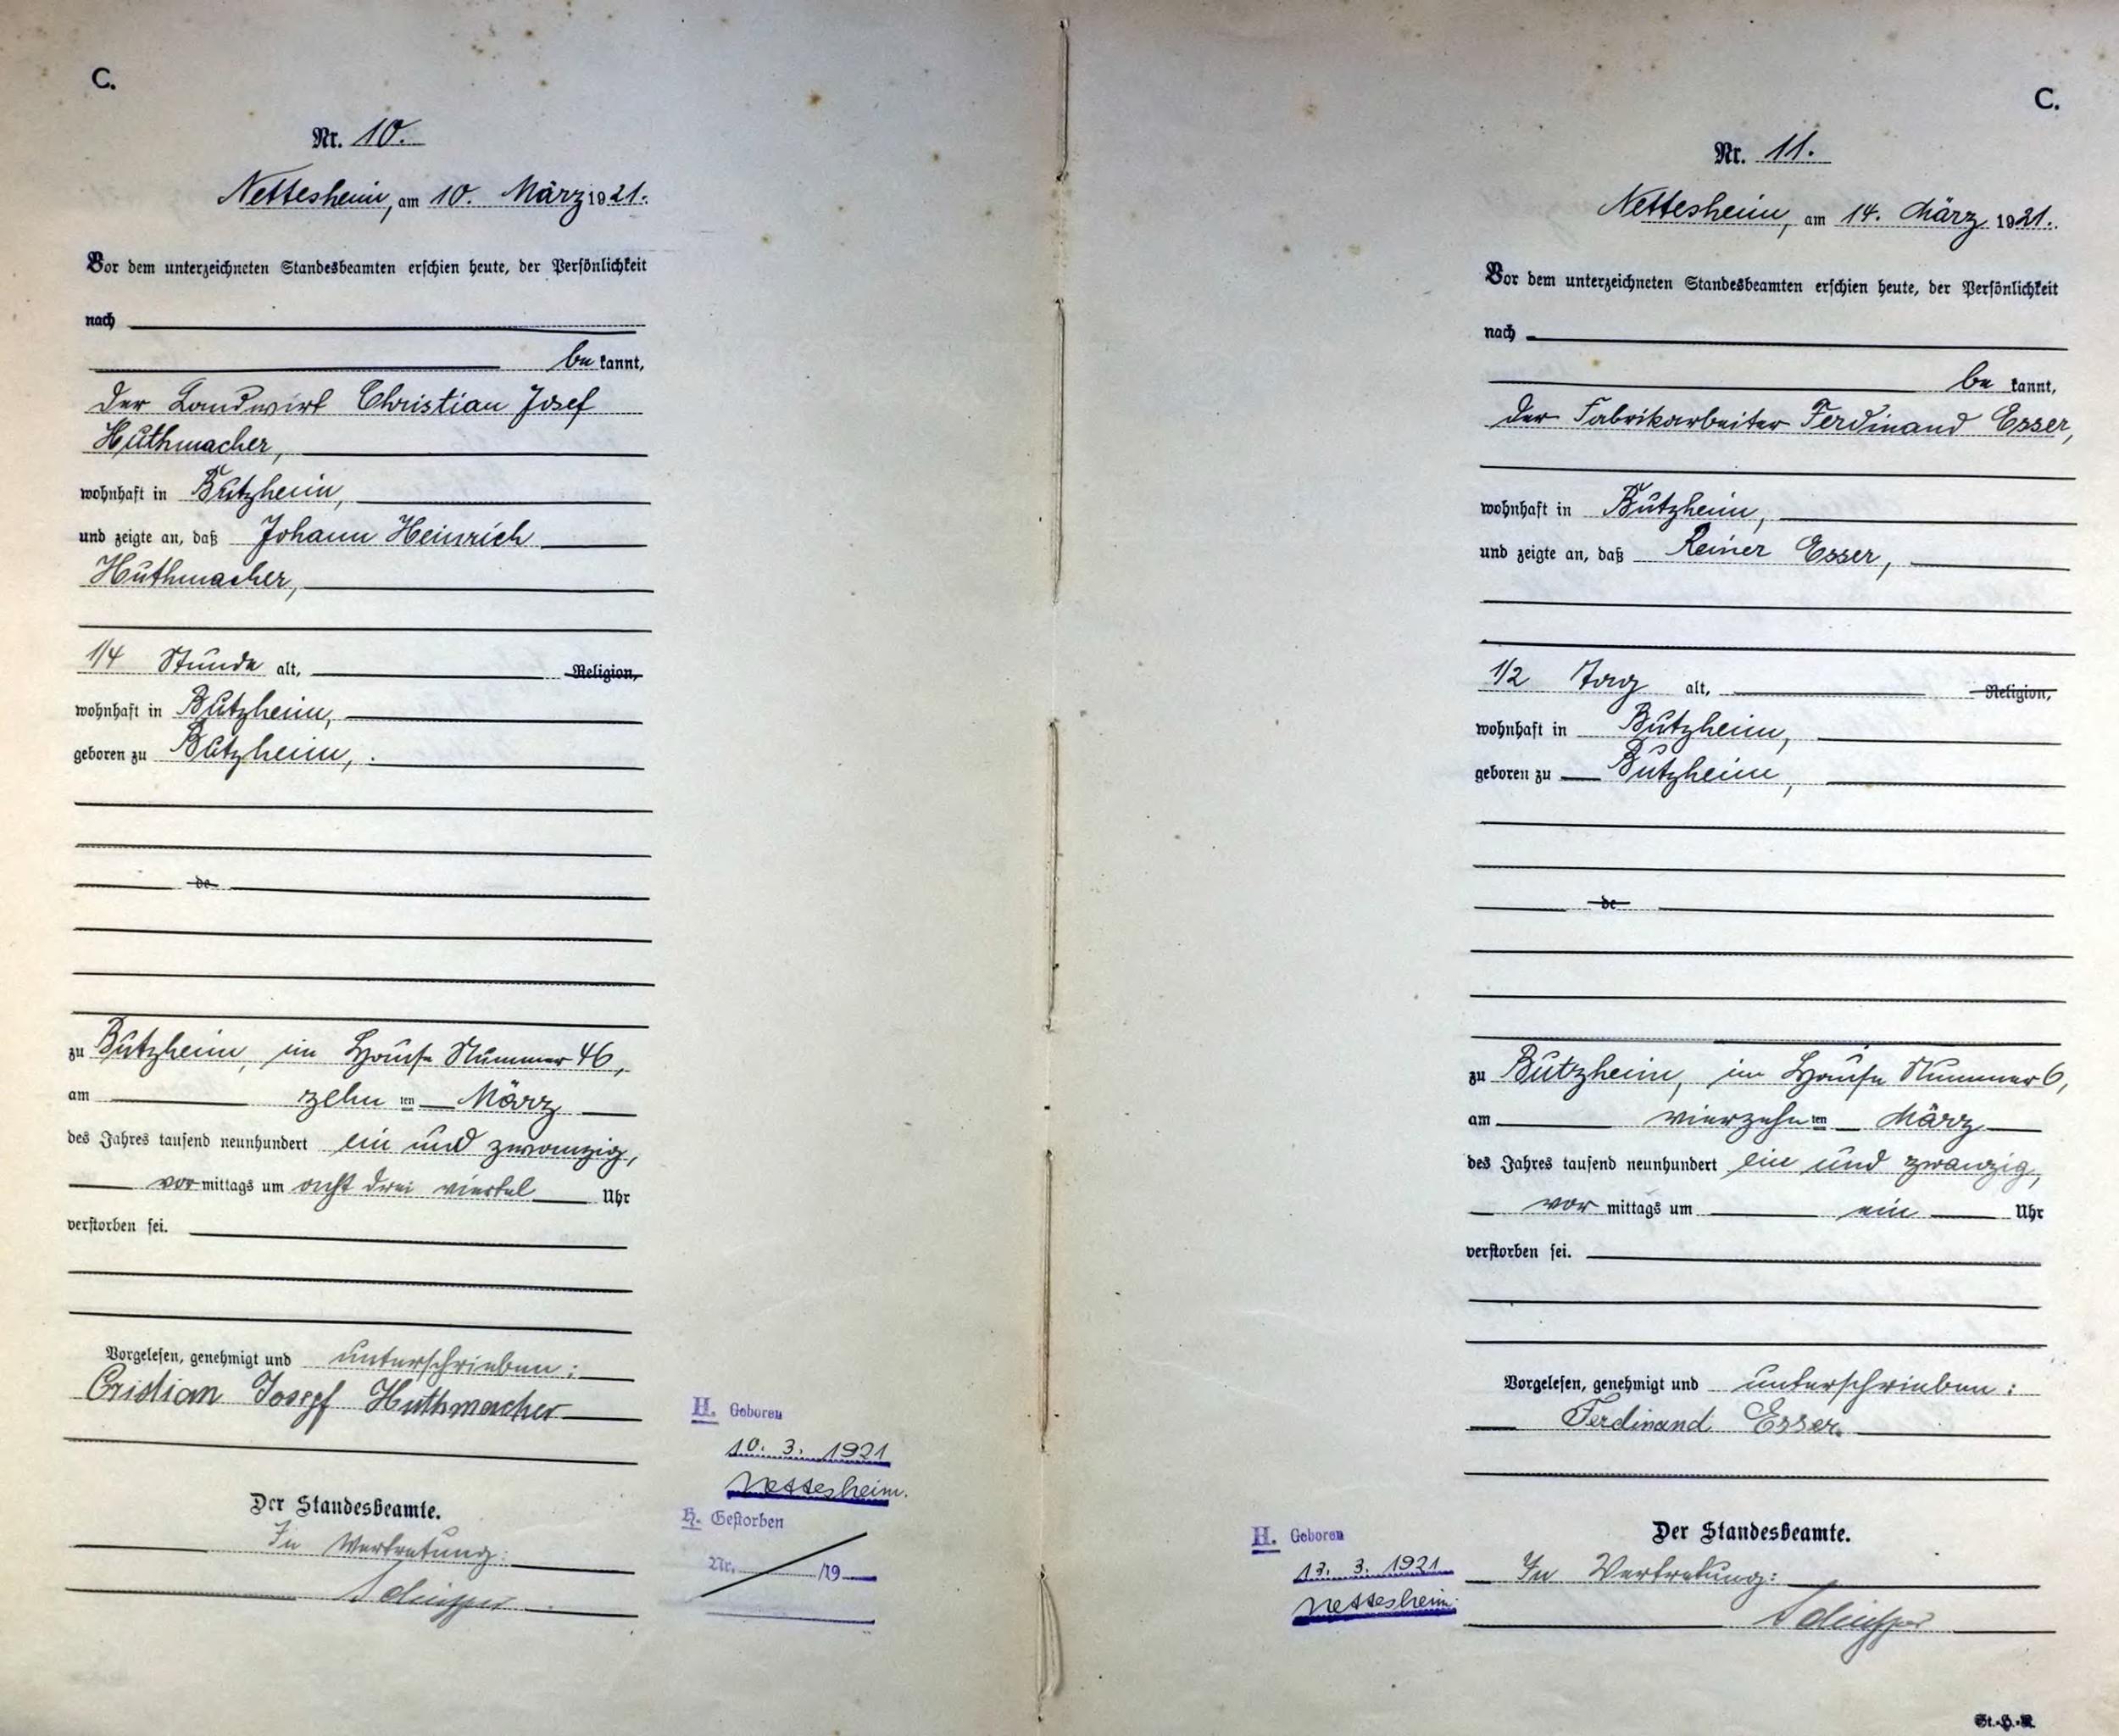 C.
Nr. 10.
Nettesheim, am 10. März 1921.
Vor dem unterzeichneten Standesbeamten erschien heute, der Persönlichkeit
nach
be kannt,
der Landwirt Christian Josef
Huthmacher,
wohnhaft in Butzheim,
und zeigte an, daß Johann Heinrich
Huthmacher,
1/4 Stunde alt, Religion,
wohnhaft in Butzheim,
geboren zu Butzheim,
de
zu Butzheim, im Hause Nummer 46,
am zehn ten März
des Jahres tausend neunhundert ein und zwanzig,
vor mittags um acht drei viertel Uhr
verstorben sei.
Vorgelesen, genehmigt und unterschrieben:
Cristian Josepf Huthmacher
Der Standesbeamte.
In Vertretung:
H. Geboren
10. 3. 1921
Nettesheim.
H. Gestorben
Nr. /19
C.
Nr. 11.
Nettesheim, am 14. März 1921.
Vor dem unterzeichneten Standesbeamten erschien heute, der Persönlichkeit
nach
be kannt,
der Fabrikarbeiter Ferdinand Esser,
wohnhaft in Butzheim,
und zeigte an, daß Reiner Esser,
1/2 Tag alt, Religion,
wohnhaft in Butzheim,
geboren zu Butzheim,
de
zu Butzheim, im Hause Nummer 6,
am vierzehn ten März
des Jahres tausend neunhundert ein und zwanzig,
vor mittags um ein Uhr
verstorben sei.
Vorgelesen, genehmigt und unterschrieben:
Ferdinand Esser.
Der Standesbeamte.
In Vertretung:
H. Geboren
13. 3. 1921
Nettesheim.